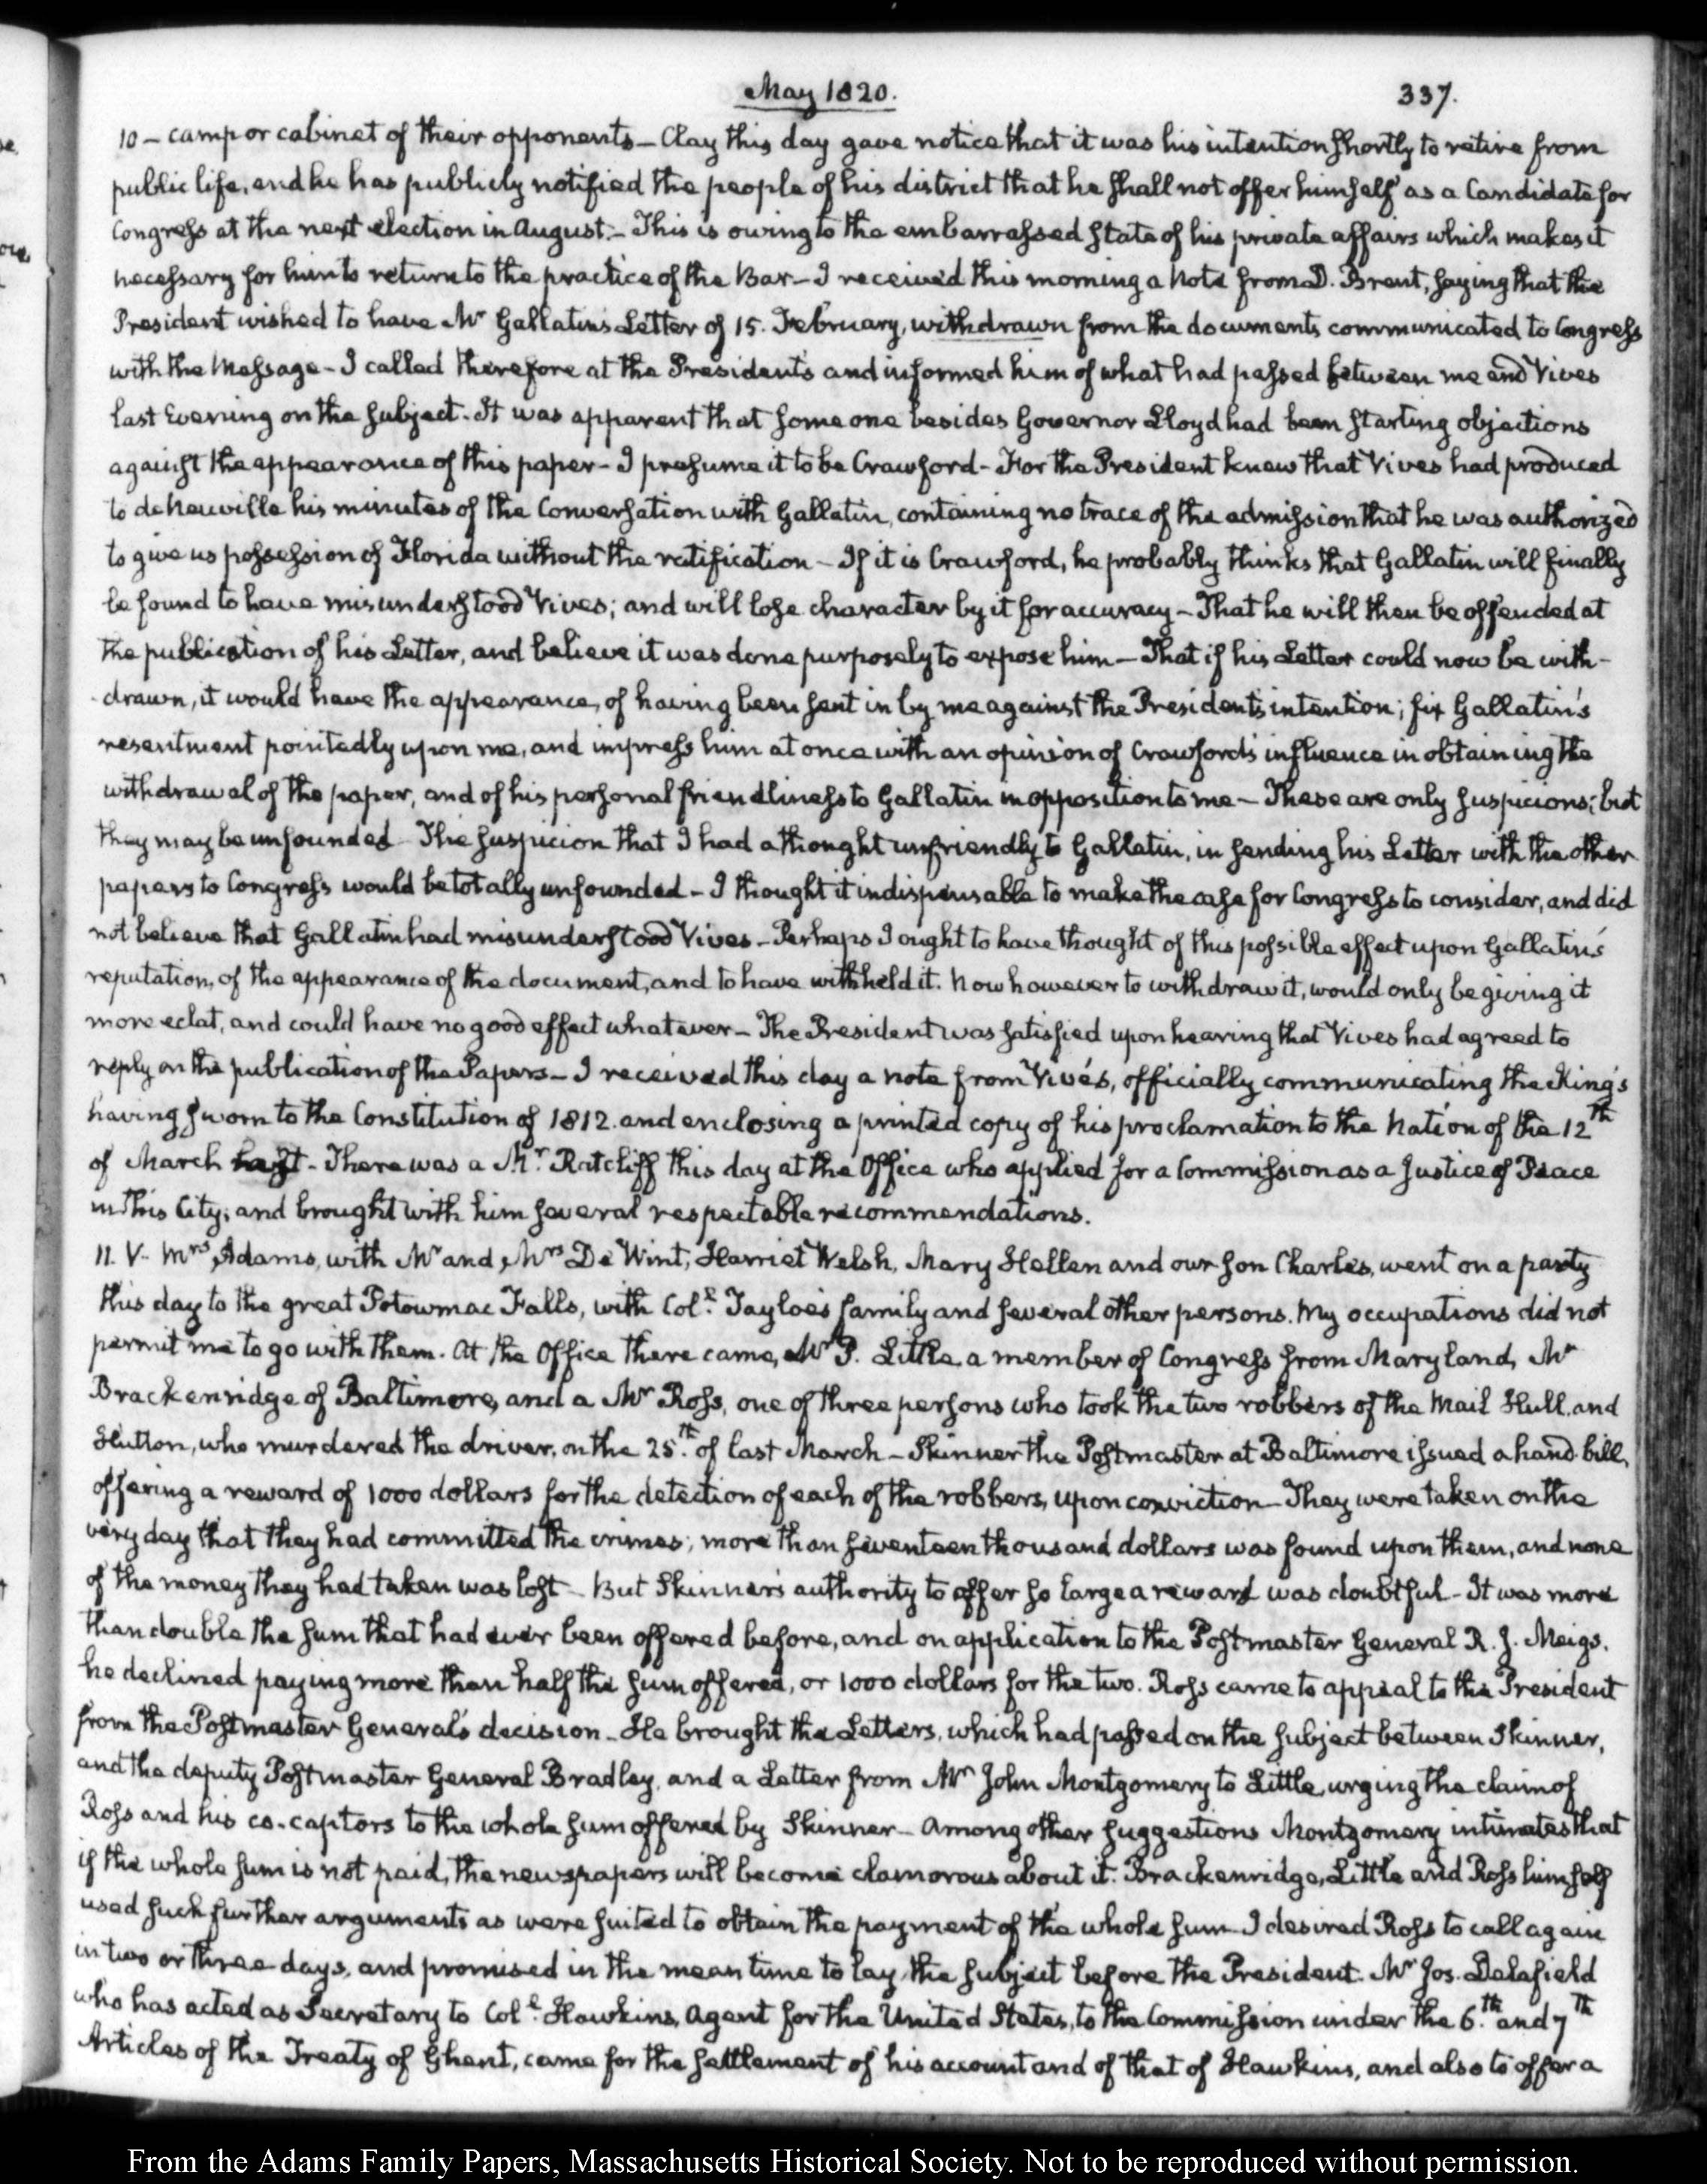 May 1820.
337.
10 - camp or cabinet of their opponents - Clay this day gave notice that it was his intention shortly to retire from
public life, and he has publicly notified the people of his district that he shall not offer himself as a Candidate for
Congress at the next election in August. - This is owing to the embarrassed state of his private affairs which makes it
necessary for him to return to the practice of the Bar - I received this morning a Note from D. Brent, saying that the
President wished to have Mr Gallatin's Letter of 15. February, withdrawn from the documents communicated to Congress
with the Message - I called therefore at the President's and informed him of what had passed between me and Vives
last Evening on the subject. It was apparent that some one besides Governor Lloyd had been starting objections
against the appearance of this paper - I presume it to be Crawford - For the President knew that Vives had produced
to de Neuville his minutes of the Conversation with Gallatin, containing no trace of the admission that he was authorized
to give us possession of Florida without the ratification - If it is Crawford, he probably thinks that Gallatin will finally
be found to have misunderstood Vives; and will lose character by it for accuracy - That he will then be offended at
the publication of his Letter, and believe it was done purposely to expose him - That if his Letter could now be with-
drawn, it would have the appearance, of having been sent in by me against the President's intention; fix Gallatin's
resentment pointedly upon me, and impress him at once with an opinion of Crawford's influence in obtaining the
withdrawal of the paper, and of his personal friendliness to Gallatin in opposition to me - These are only suspicions; but
they may be unfounded - The suspicion that I had a thought unfriendly to Gallatin, in sending his Letter with the other
papers to Congress would be totally unfounded - I thought it indispensable to make the case for Congress to consider, and did
not believe that Gallatin had misunderstood Vives - Perhaps I ought to have thought of this possible effect upon Gallatin's
reputation, of the appearance of the document, and to have withheld it. Now however to withdraw it, would only be giving it
more eclat, and could have no good effect whatever - The President was satisfied upon hearing that Vives had agreed to
reply on the publication of the Papers - I received this day a note from Vivés, officially communicating the King's
having sworn to the Constitution of 1812. and enclosing a printed copy of his proclamation to the Nation of the 12th
of March last - There was a Mr. Ratcliff this day at the Office who applied for a Commission as a Justice of Peace
in this City; and brought with him several respectable recommendations.
11. V. Mrs Adams, with Mr and Mrs De Wint, Harriet Welsh, Mary Hellen and our son Charles, went on a party
this day to the great Potowmac Falls, with Coll. Tayloe's family and several other persons. My occupations did not
permit me to go with them. At the Office there came, Mr P. Little, a member of Congress from Maryland, Mr
Brackenridge of Baltimore, and a Mr Ross, one of three persons who took the two robbers of the Mail Hull, and
Hutton, who murdered the driver, on the 25th. of last March - Skinner the Postmaster at Baltimore issued a hand bill,
offering a reward of 1000 dollars for the detection of each of the robbers, upon conviction - They were taken on the
very day that they had committed the crimes; more than seventeen thousand dollars was found upon them, and none
of the money they had taken was lost - But Skinner's authority to offer so large a reward was doubtful - It was more
than double the sum that had ever been offered before, and on application to the Postmaster General R. J. Meigs,
he declined paying more than half the sum offered, or 1000 dollars for the two. Ross came to appeal to the President
from the Postmaster General's decision - He brought the Letters, which had passed on the subject between Skinner,
and the deputy Postmaster General Bradley, and a Letter from Mr John Montgomery to Little, urging the claim of
Ross and his co-captors to the whole sum offered by Skinner - Among other suggestions Montgomery intimates that
if the whole sum is not paid, the newspapers will become clamorous about it. Brackenridge, Little and Ross himself
used such further arguments as were suited to obtain the payment of the whole sum - I desired Ross to call again
in two or three days, and promised in the mean time to lay the subject before the President. Mr Jos. Delafield
who has acted as Secretary to Coll. Hawkins, Agent for the United States, to the Commission under the 6th. and 7th
Articles of the Treaty of Ghent, came for the settlement of his account and of that of Hawkins, and also to offer a
From the Adams Family Papers, Massachusetts Historical Society. Not to be reproduced without permission.